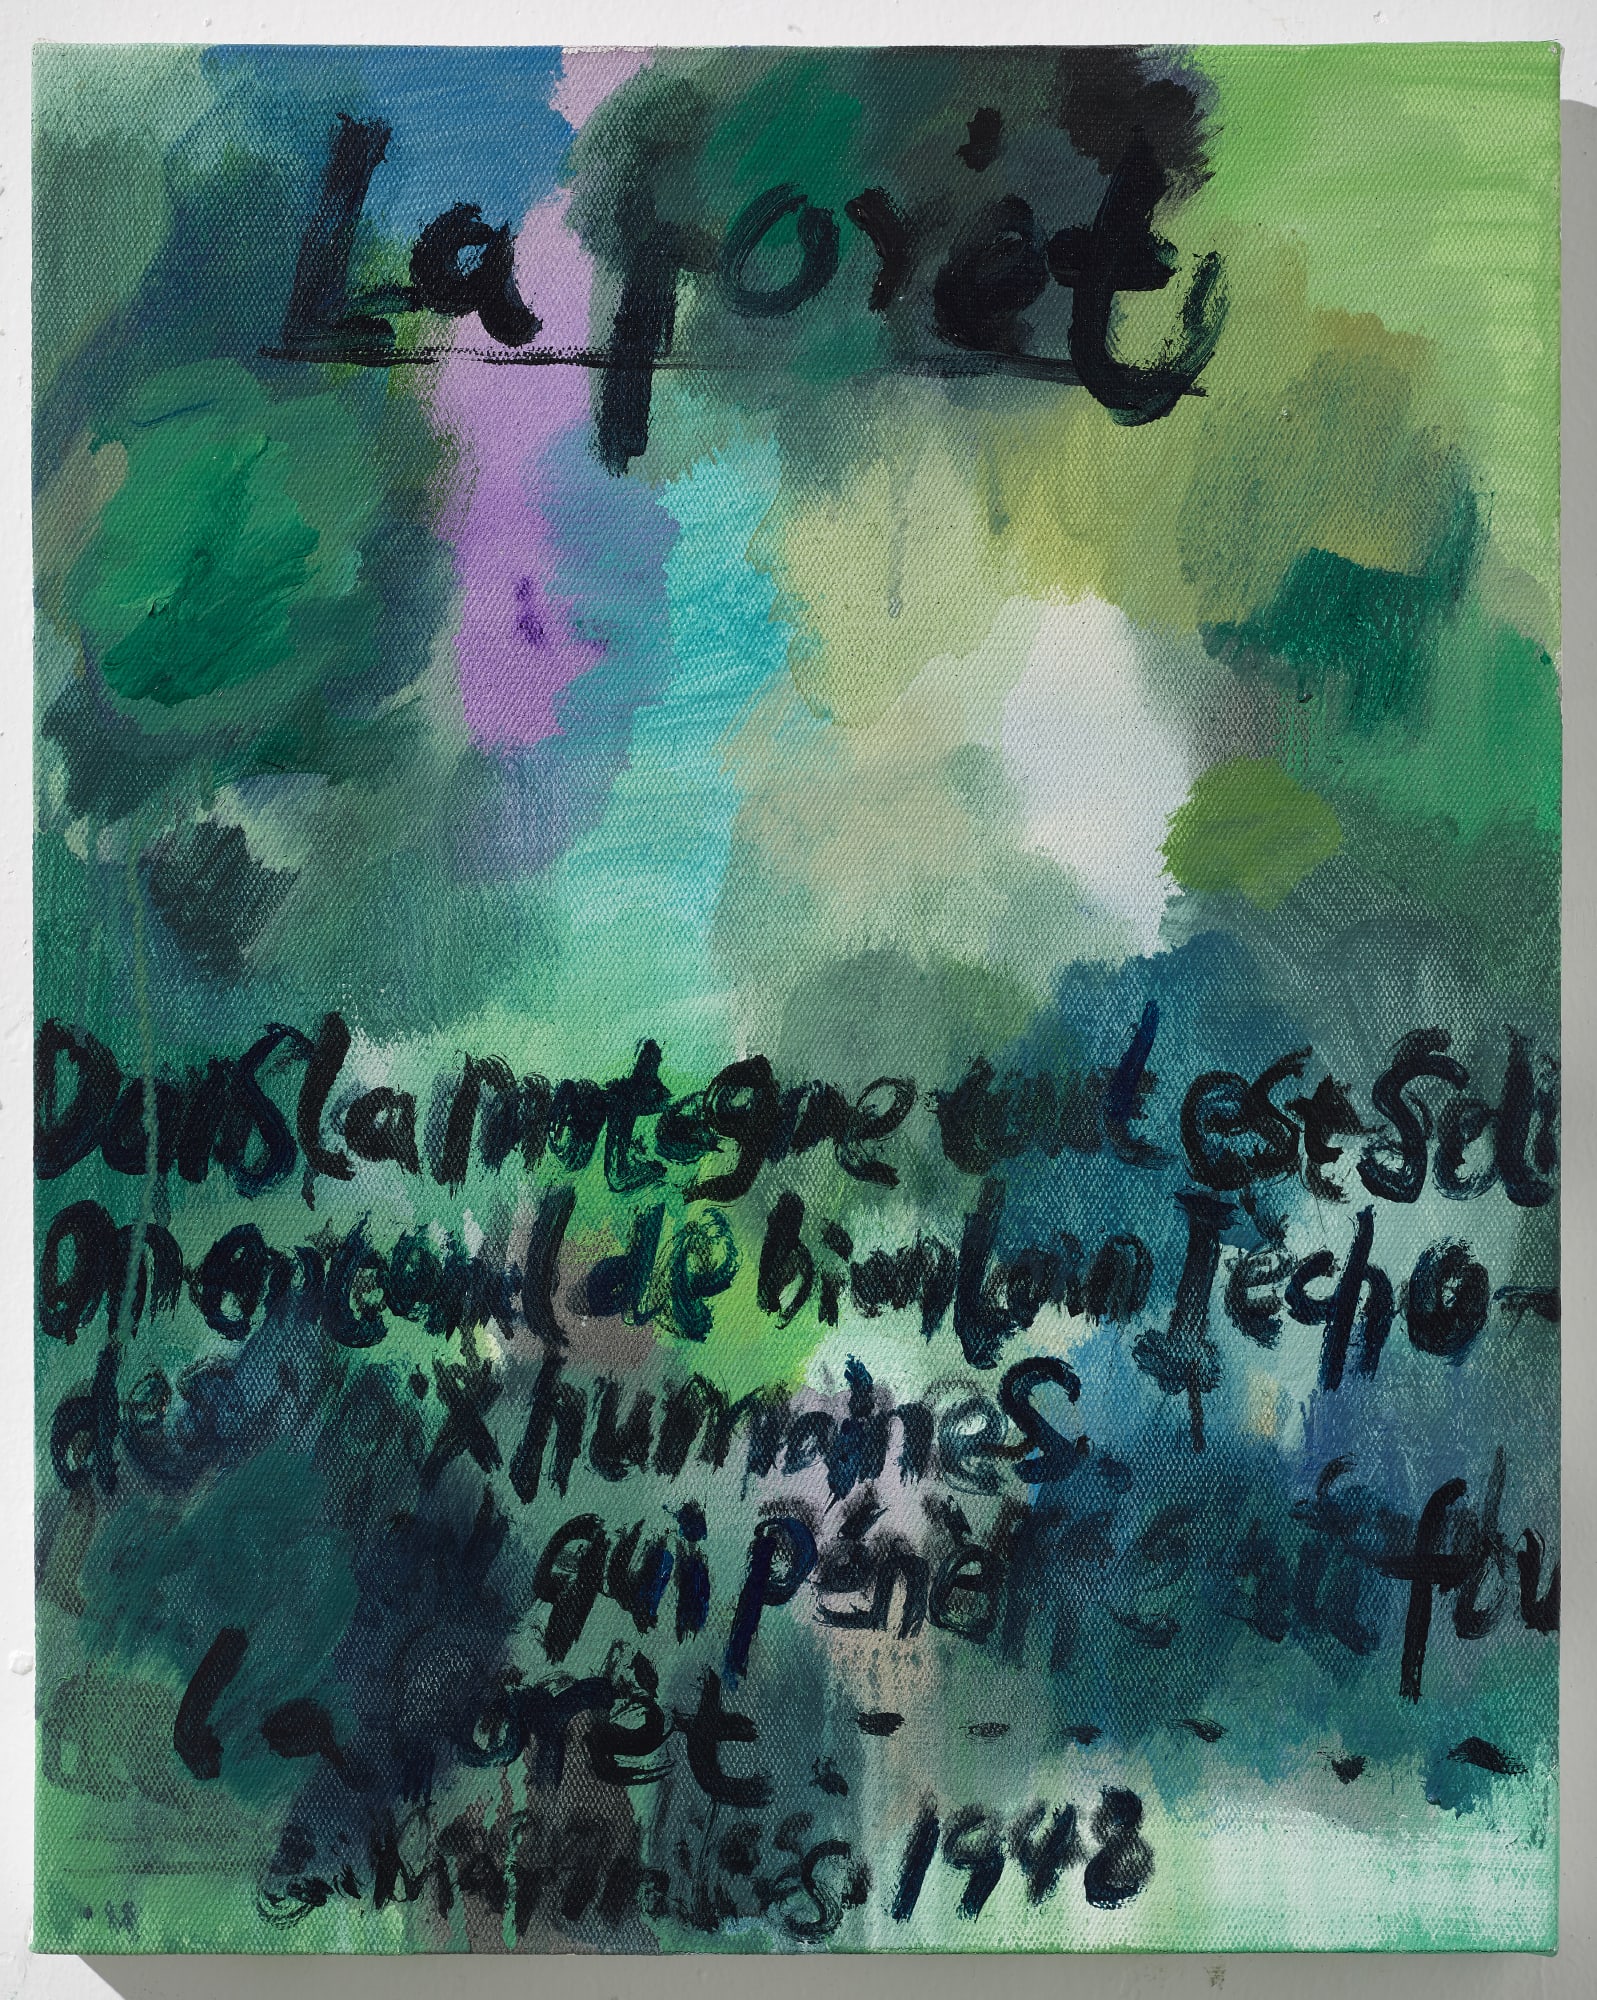 La forêt
Dans la motagne tout est soli
on entend de bien loin l'écho
des voix humaines
qui pénè fou
la forêt.
1948